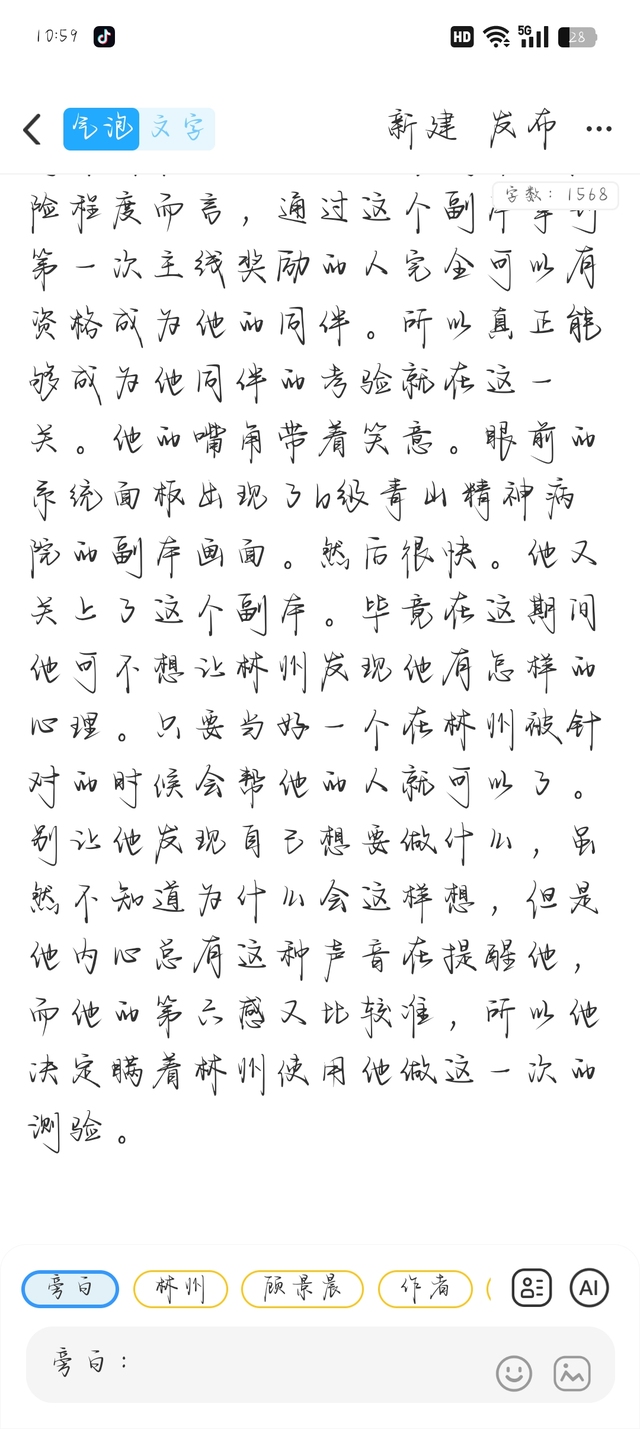 10:59
HD
5G
28
气泡 文字
新建 发布
字数：1568
险程度而言，通过这个副
第一次主线奖励的人完全可以有
资格成为他的同伴。所以真正能
够成为他同伴的考验就在这一
关。他的嘴角带着笑意。眼前的
系统面板出现了b级青山精神病
院的副本画面。然后很快。他又
关上了这个副本。毕竟在这期间
他可不想让林州发现他有怎样的
心理。只要当好一个在林州被针
对的时候会帮他的人就可以了。
别让他发现自己想要做什么，虽
然不知道为什么会这样想，但是
他内心总有这种声音在提醒他，
而他的第六感又比较准，所以他
决定瞒着林州使用他做这一次的
测验。
旁白 林州 顾景晨 作者
AI
旁白：